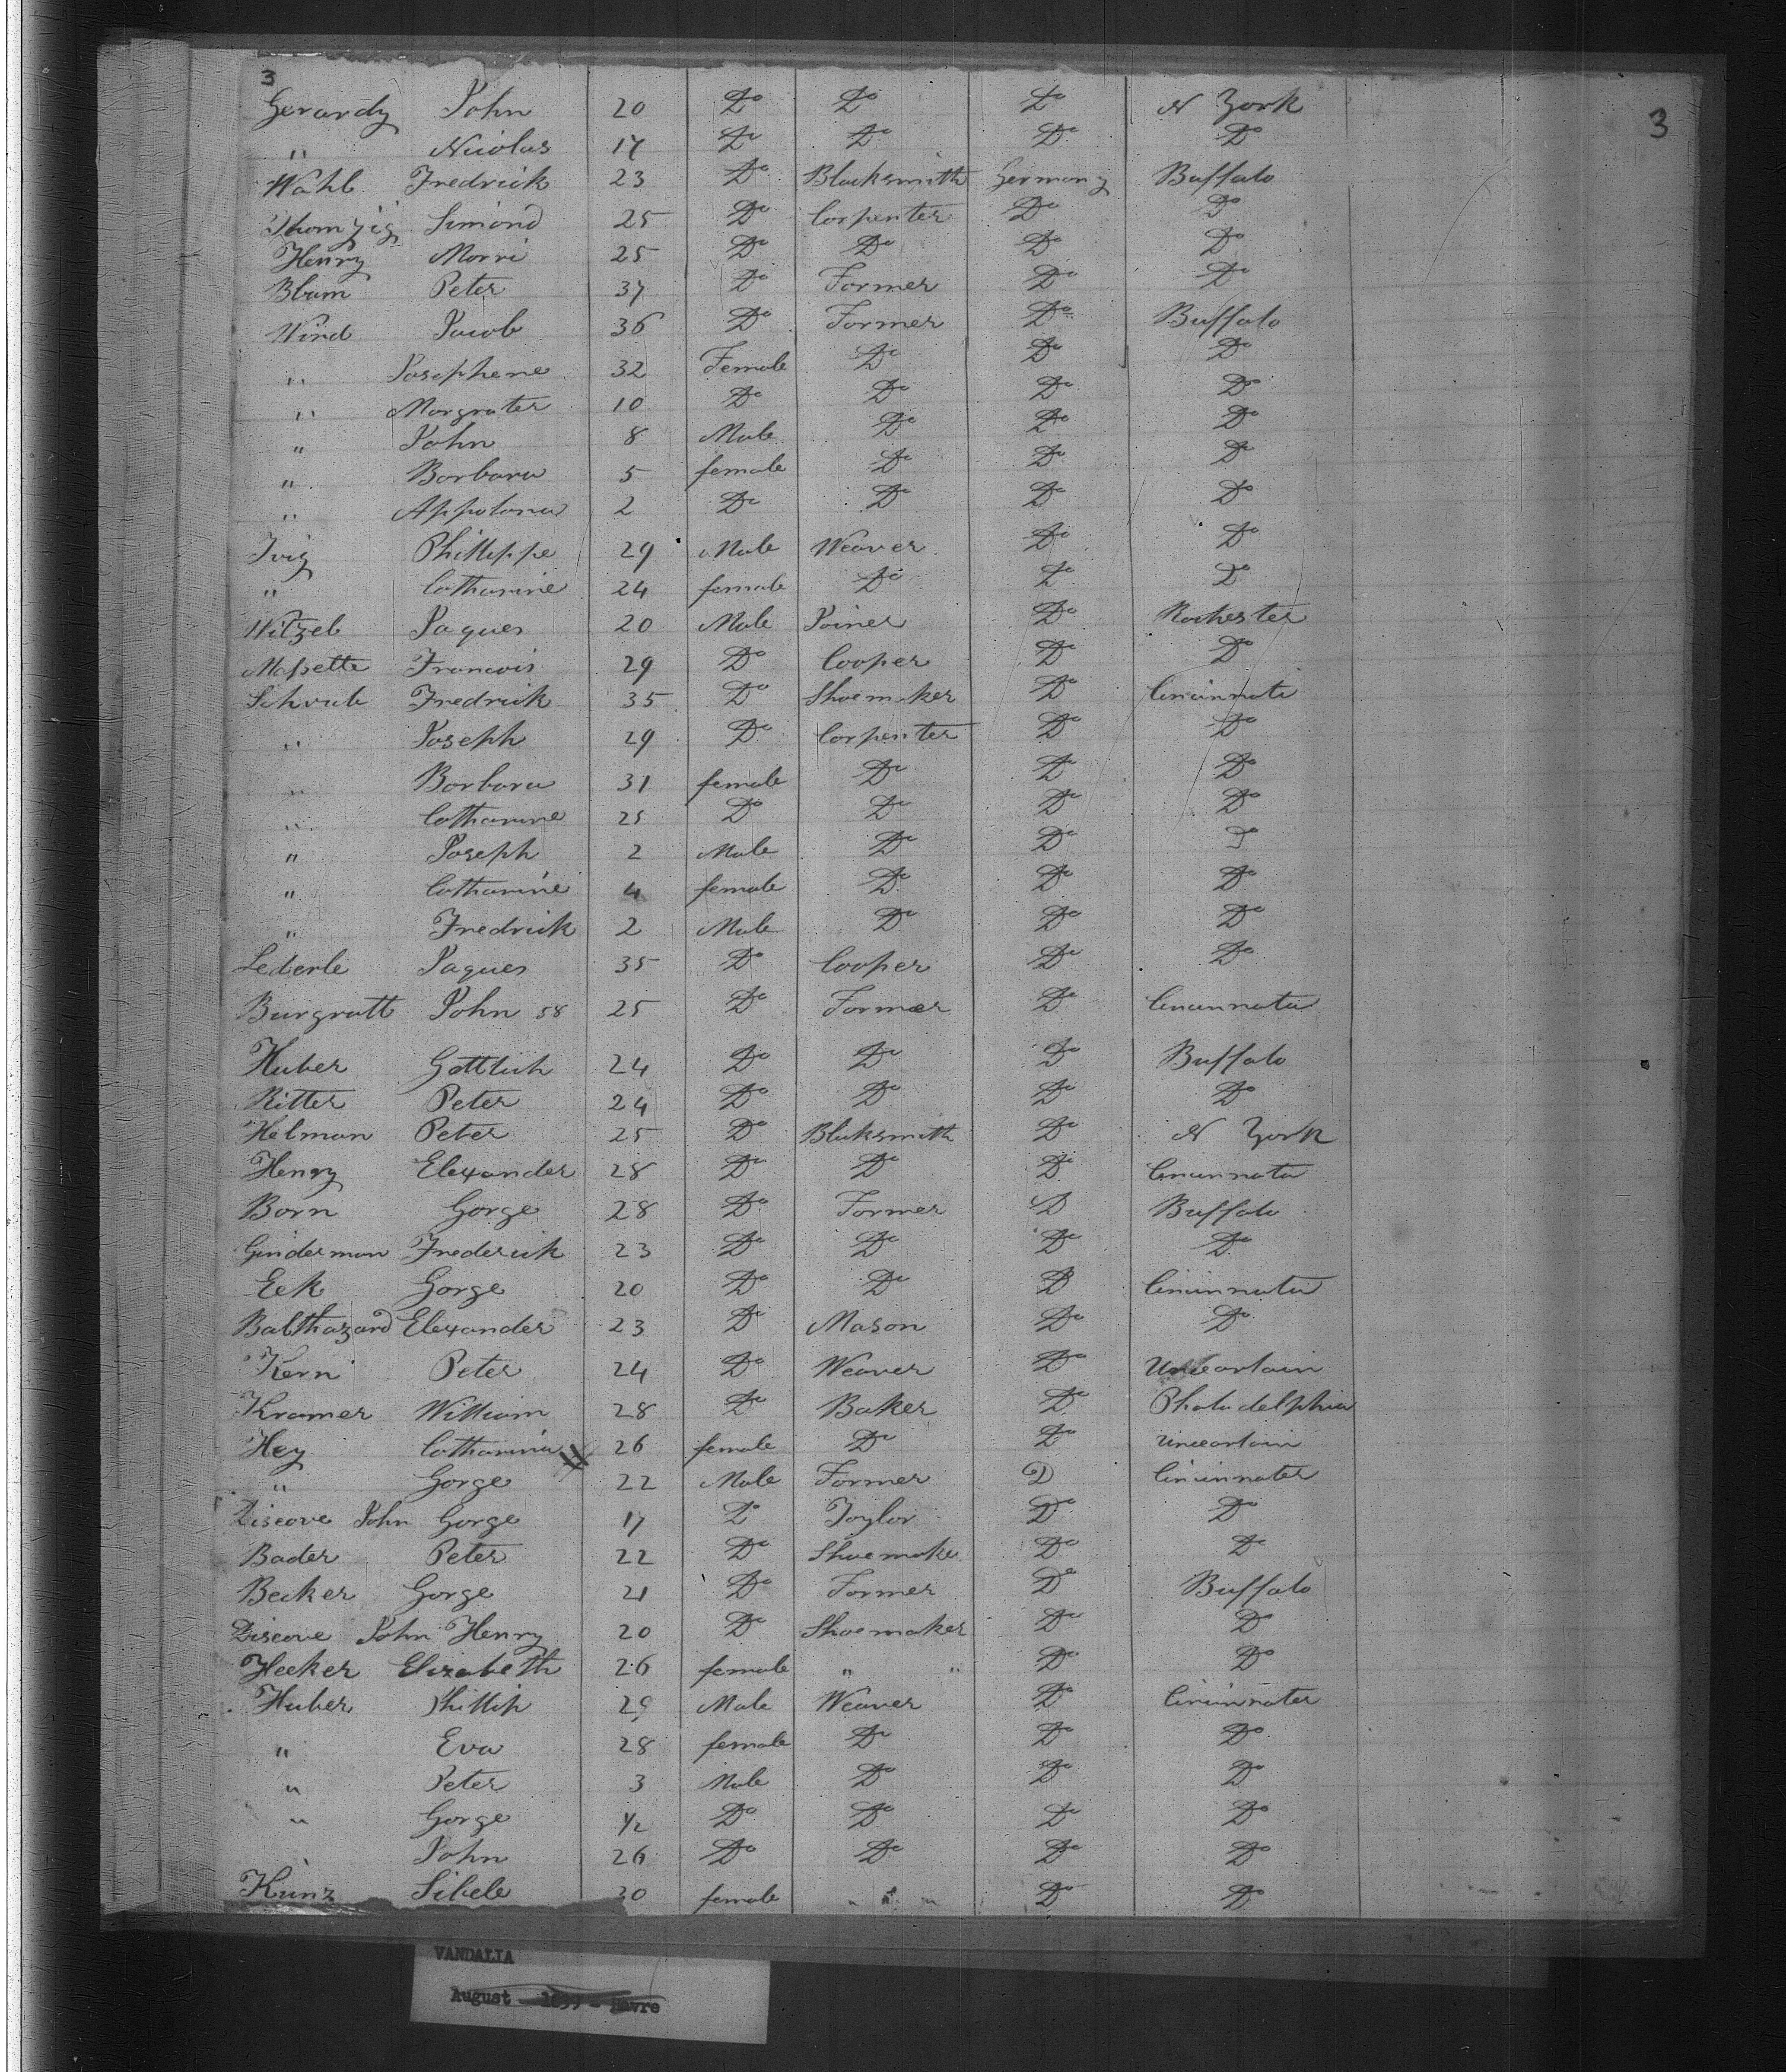 3
3
Gerardy John 20 Do Do Do N York
" Nicolas 17 Do Do Do Do
Wahl Fredrick 23 Do Blacksmith Germany Buffalo
Simond 25 Do Carpenter Do Do
Henry Morri 25 Do Do Do Do
Blum Peter 37 Do Farmer Do Do
Wind Jacob 36 Do Farmer Do Buffalo
" Josephene 32 Female Do Do Do
" Margrater 10 Do Do Do Do
" John 8 Male Do Do Do
" Barbara 5 female Do Do Do
" Appolona 2 Do Do Do Do
Ivig Phillippe 29 Male Weaver Do Do
" Catharine 24 female Do Do Do
Witzel Jaques 20 Male Joiner Do Rochester
Massette Francois 29 Do Cooper Do Do
Schvab Fredrick 35 Do Shoemaker Do Cincinnati
" Joseph 29 Do Carpenter Do Do
" Barbara 31 female Do Do Do
" Catharine 25 Do Do Do Do
" Joseph 2 Male Do Do Do
" Catharine 4 female Do Do Do
" Fredrick 2 Male Do Do Do
Lederle Jaques 35 Do Cooper Do Do
Burgratt John 58 25 Do Farmer Do Cincinnati
Huber Gottlieb 24 Do Do Do Buffalo
Ritter Peter 24 Do Do Do Do
Helman Peter 25 Do Blacksmith Do N York
Henry Elexander 28 Do Do Do Cincinnata
Born Gorge 28 Do Farmer D Buffalo
Ginderman Frederick 23 Do Do Do Do
Eck Gorge 20 Do Do D Cincinnati
Balthazard Elexander 23 Do Mason Do Do
Kern Peter 24 Do Weaver Do Uncertain
Kramer William 28 Do Baker Do Phaladelphia
Hey Catharina 26 female Do Do uncertain
" Gorge 22 Male Farmer D Cincinnater
Discove John Gorge 17 Do Taylor Do Do
Bader Peter 22 Do Shoemake Do Do
Becker Gorge 21 Do Farmer Do Buffalo
Discove John Henry 20 Do Shoemaker Do Do
Hecker Elizabeth 26 female " " Do Do
Huber Phillip 29 Male Weaver Do Cincinnater
" Eva 28 female Do Do Do
" Peter 3 Male Do Do Do
" Gorge 1/2 Do Do Do Do
John 26 Do Do Do Do
Kunz Sibele 30 female " " " Do Do
VANDALIA
August 1839 - Havre